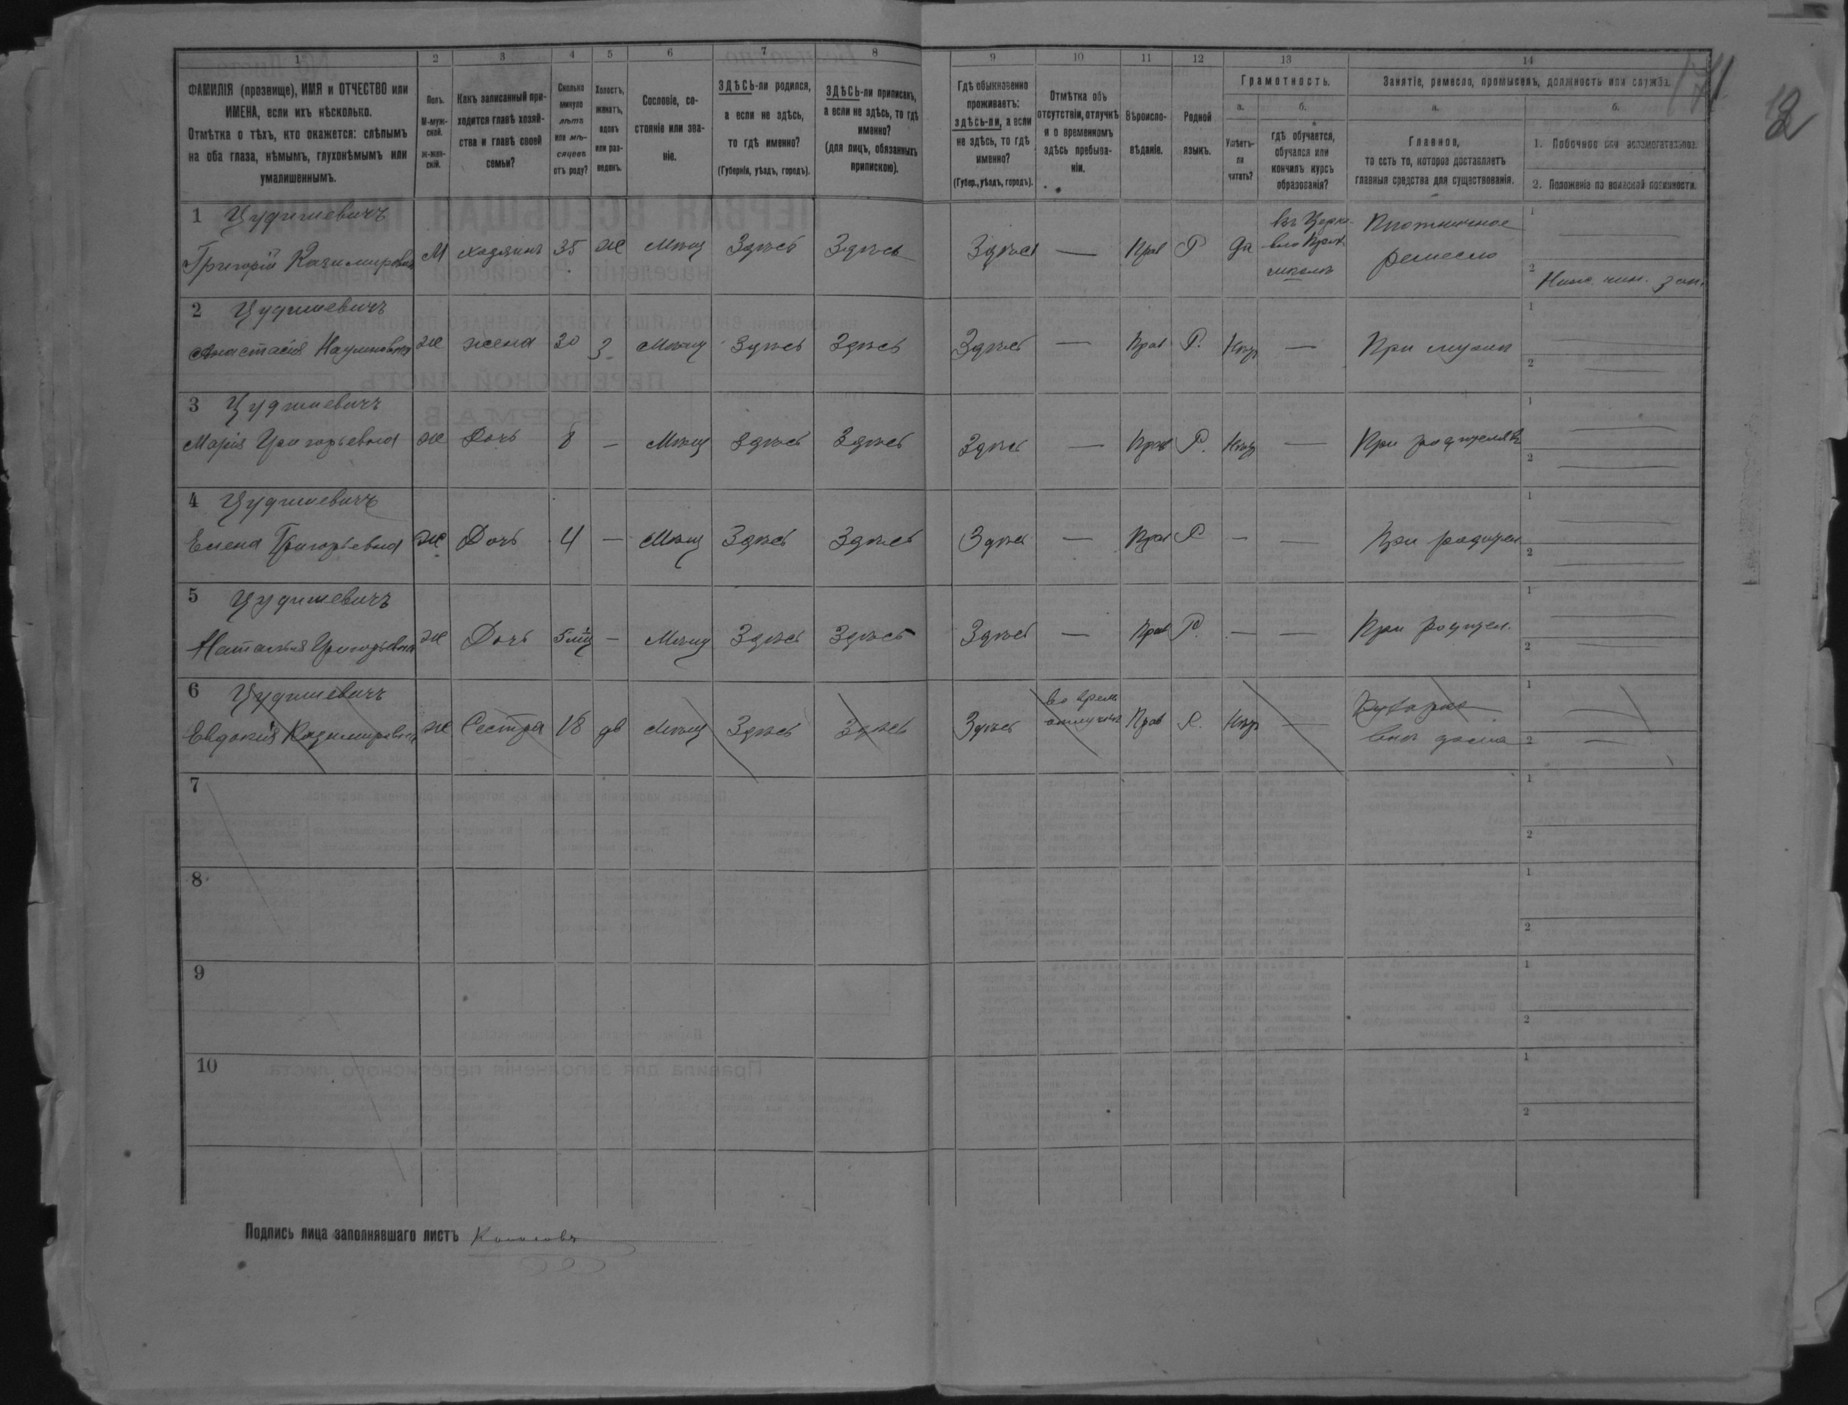 1 2 3 4 5 6 7 8 9 10 11 12 13 14
ФАМИЛІЯ (прозвище), ИМЯ и ОТЧЕСТВО или
ИМЕНА, если ихъ нѣсколько.
Отмѣтка о тѣхъ, кто окажется: слѣпымъ
на оба глаза, нѣмымъ, глухонѣмымъ или
умалишеннымъ.
Полъ.
М-муж-
ской.
Ж-жен-
скій.
Какъ записанный при-
ходится главѣ хозяй-
ства и главѣ своей
семьи?
Сколько
минуло
лѣтъ
или мѣ-
сяцевъ
отъ роду?
Холостъ,
женатъ,
вдовъ
или раз-
веденъ.
Сословіе, со-
стояніе или зва-
ніе.
ЗДѢСЬ-ли родился,
а если не здѣсь,
то гдѣ именно?
(Губернія, уѣздъ, городъ).
ЗДѢСЬ-ли приписанъ,
а если не здѣсь, то гдѣ
именно?
(для лицъ, обязанныхъ
припискою).
Гдѣ обыкновенно
проживаетъ:
здѣсь-ли, а если
не здѣсь, то гдѣ
именно?
(Губер., уѣздъ, городъ).
Отмѣтка объ
отсутствіи, отлучкѣ
и о временномъ
здѣсь пребыва-
ніи.
Вѣроиспо-
вѣданіе.
Родной
языкъ.
Грамотность.
а. б.
Умѣетъ-
ли
читать?
гдѣ обучается,
обучался или
кончилъ курсъ
образованія?
Занятіе, ремесло, промыселъ, должность или служба.
а. б.
Главное,
то есть то, которое доставляетъ
главныя средства для существованія.
1. Побочное или вспомогательное.
2. Положеніе по воинской повинности.
12
1 Цудишевичъ
Григорій Казимировъ М хозяинъ 35 Ж Мѣщ Здѣсь Здѣсь Здѣсь — Прав Р Да
школѣ
Плотничное
ремесло
1
2
2 Цудишевичъ
Анастасія Наумовна Ж жена 30 З. Мѣщ Здѣсь Здѣсь Здѣсь — Прав Р. — При мужѣ
1
2
3 Цудишевичъ
Марія Григорьевна Ж Дочь 8 — Мѣщ Здѣсь Здѣсь Здѣсь — Прав Р. — При родителяхъ
1
2
4 Цудишевичъ
Елена Григорьевна Ж Дочь 4 — Мѣщ Здѣсь Здѣсь Здѣсь — Прав Р — — При родител
1
2
5 Цудишевичъ
Наталья Григорьевна Ж Дочь 5 мѣц — Мѣщ Здѣсь Здѣсь Здѣсь — Прав Р. — — При родител.
1
2
6 Цудишевичъ
Евдокія Казимировна Ж Сестра 18 дв Мѣщ Здѣсь Здѣсь Здѣсь
Прав Р. —
1
2
7 1
2
8 1
2
9 1
2
10 1
2
Подпись лица заполнявшаго листъ